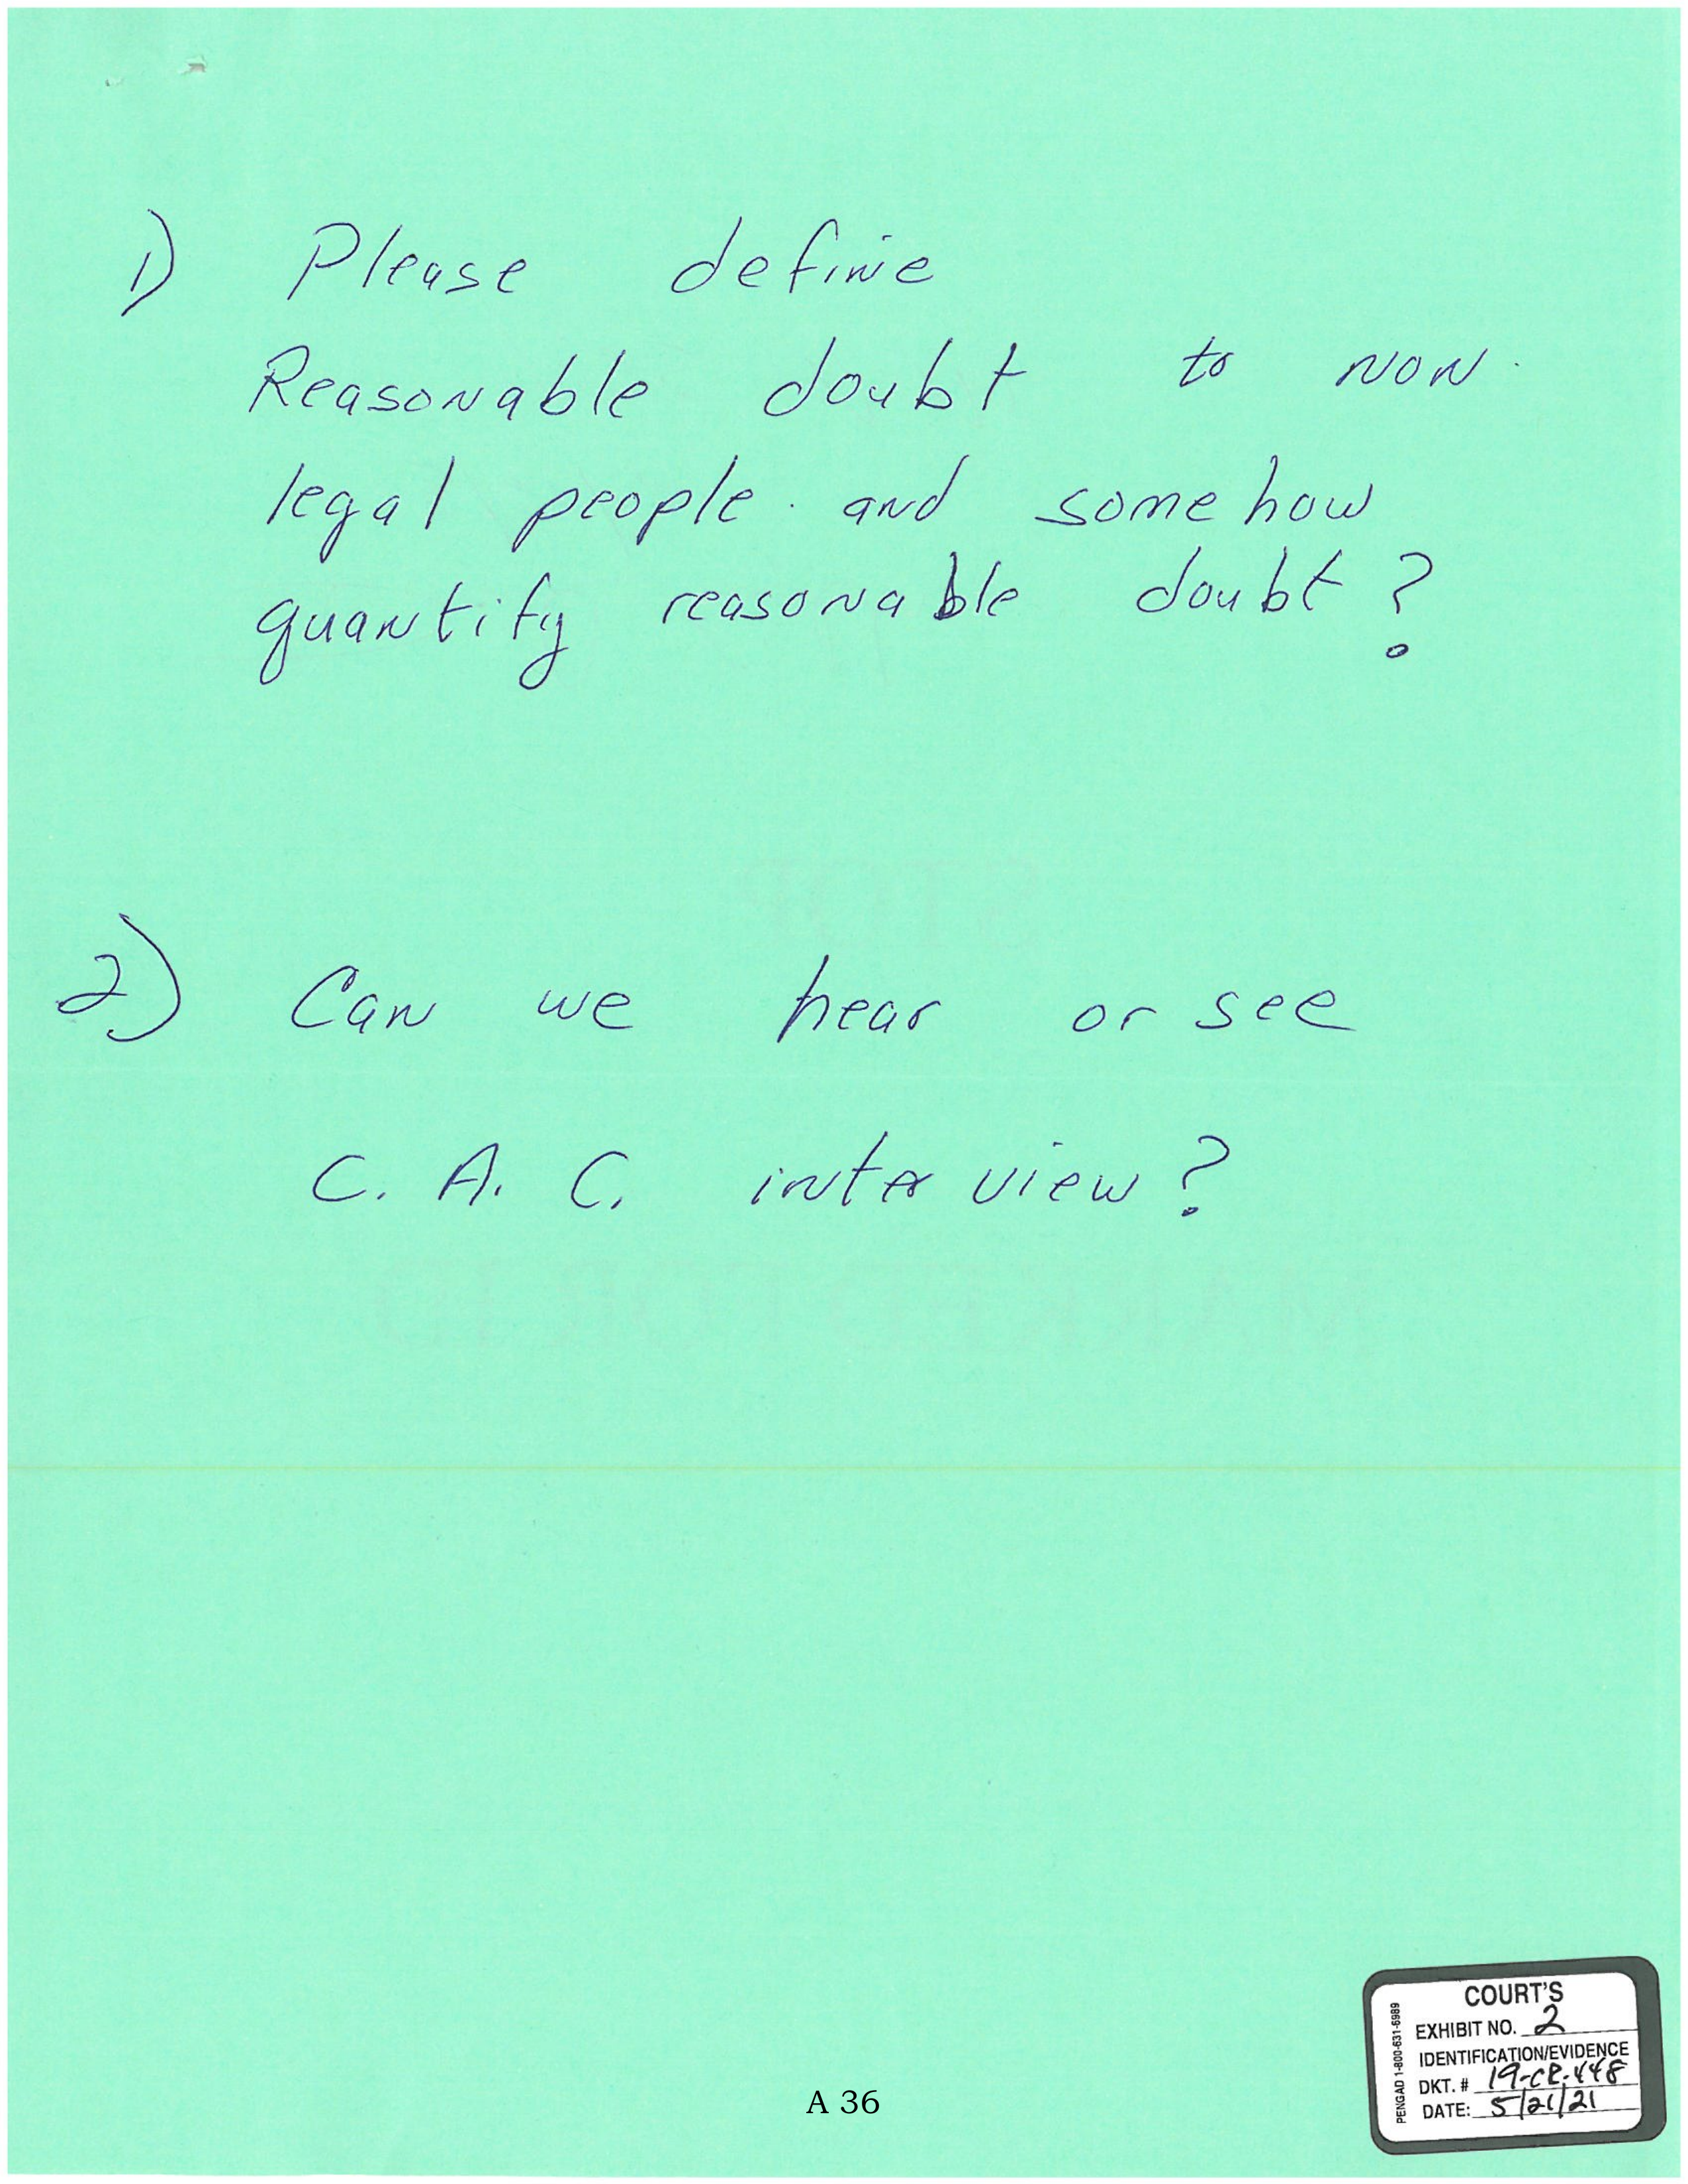 1) Please define
Reasonable doubt to non-
legal people and somehow
quantify reasonable doubt?
2) Can we hear or see
C. A. C. interview?
COURT'S
EXHIBIT NO. 2
IDENTIFICATION/EVIDENCE
DKT. # 19-CR-448
DATE: 5/21/21
PENGAD 1-800-631-6989
A 36